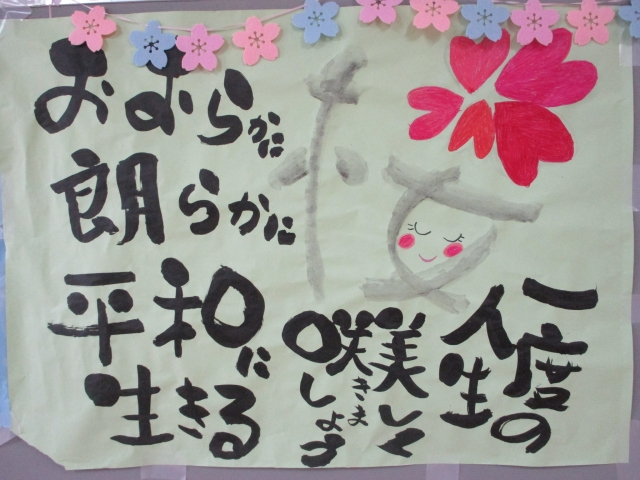 おおらかに
朗らかに
平和に
生きる
桜
一度の
人生
美しく
咲きま
しょう